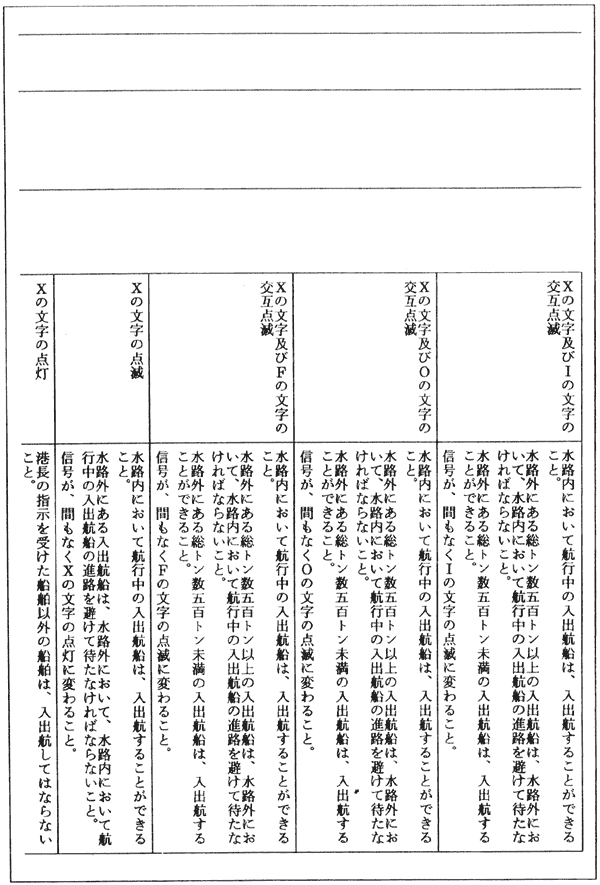 Xの文字及びIの文字の
交互点滅
水路内において航行中の入出航船は、入出航することができる
こと。
水路外にある総トン数五百トン以上の入出航船は、水路外にお
いて、水路内において航行中の入出航船の進路を避けて待たな
ければならないこと。
水路外にある総トン数五百トン未満の入出航船は、入出航する
ことができること。
信号が、間もなくIの文字の点滅に変わること。
Xの文字及びOの文字の
交互点滅
水路内において航行中の入出航船は、入出航することができる
こと。
水路外にある総トン数五百トン以上の入出航船は、水路外にお
いて、水路内において航行中の入出航船の進路を避けて待たな
ければならないこと。
水路外にある総トン数五百トン未満の入出航船は、入出航する
ことができること。
信号が、間もなくOの文字の点滅に変わること。
Xの文字及びFの文字の
交互点滅
水路内において航行中の入出航船は、入出航することができる
こと。
水路外にある総トン数五百トン以上の入出航船は、水路外にお
いて、水路内において航行中の入出航船の進路を避けて待たな
ければならないこと。
水路外にある総トン数五百トン未満の入出航船は、入出航する
ことができること。
信号が、間もなくFの文字の点滅に変わること。
Xの文字の点滅
水路内において航行中の入出航船は、入出航することができる
こと。
水路外にある入出航船は、水路外において、水路内において航
行中の入出航船の進路を避けて待たなければならないこと。
信号が、間もなくXの文字の点灯に変わること。
Xの文字の点灯
港長の指示を受けた船舶以外の船舶は、入出航してはならない
こと。